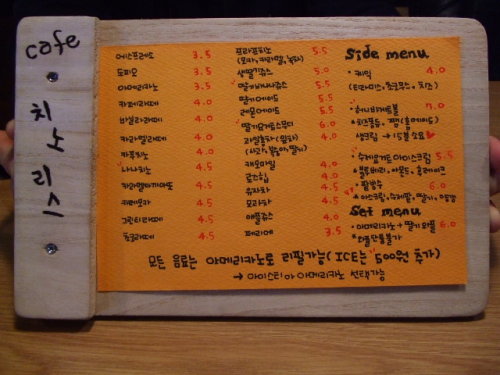 cafe
치노리스
에스프레소 3.5
도피오 3.5
아메리카노 3.5
카페라떼 4.0
바닐라라떼 4.0
카라멜라떼 4.0
카푸치노 4.0
4.5
카라멜마끼아또 4.5
카페모카 4.5
그린티라떼 4.5
초코라떼 4.5
프라프치노 5.5
(모카, 카라멜, 녹차)
생딸기쥬스 5.0
딸기바나나쥬스 5.5
딸기에이드 5.5
레몬에이드 5.0
딸기요거트스무디 6.0
과일홍차(립파) 4.0
4.0
캐모마일 4.0
로즈힙 4.0
유자차 4.5
모과차 4.5
애플쥬스 4.0
페리에 3.5
Side menu
케익 4.0
(티라미스, 초코무스, 치즈)
허니브레드볼 7.0
생크림 → 15분 소요
수제요거트아이스크림 5.5
블루베리, 아몬드, 콘레이크
팥빙수 6.0
Set menu
아메리카노 + 딸기 와플 6.0
모든 음료는 아메리카노로 리필가능(ICE는 500원 추가)
→ 아이스티 or 아메리카노 선택가능